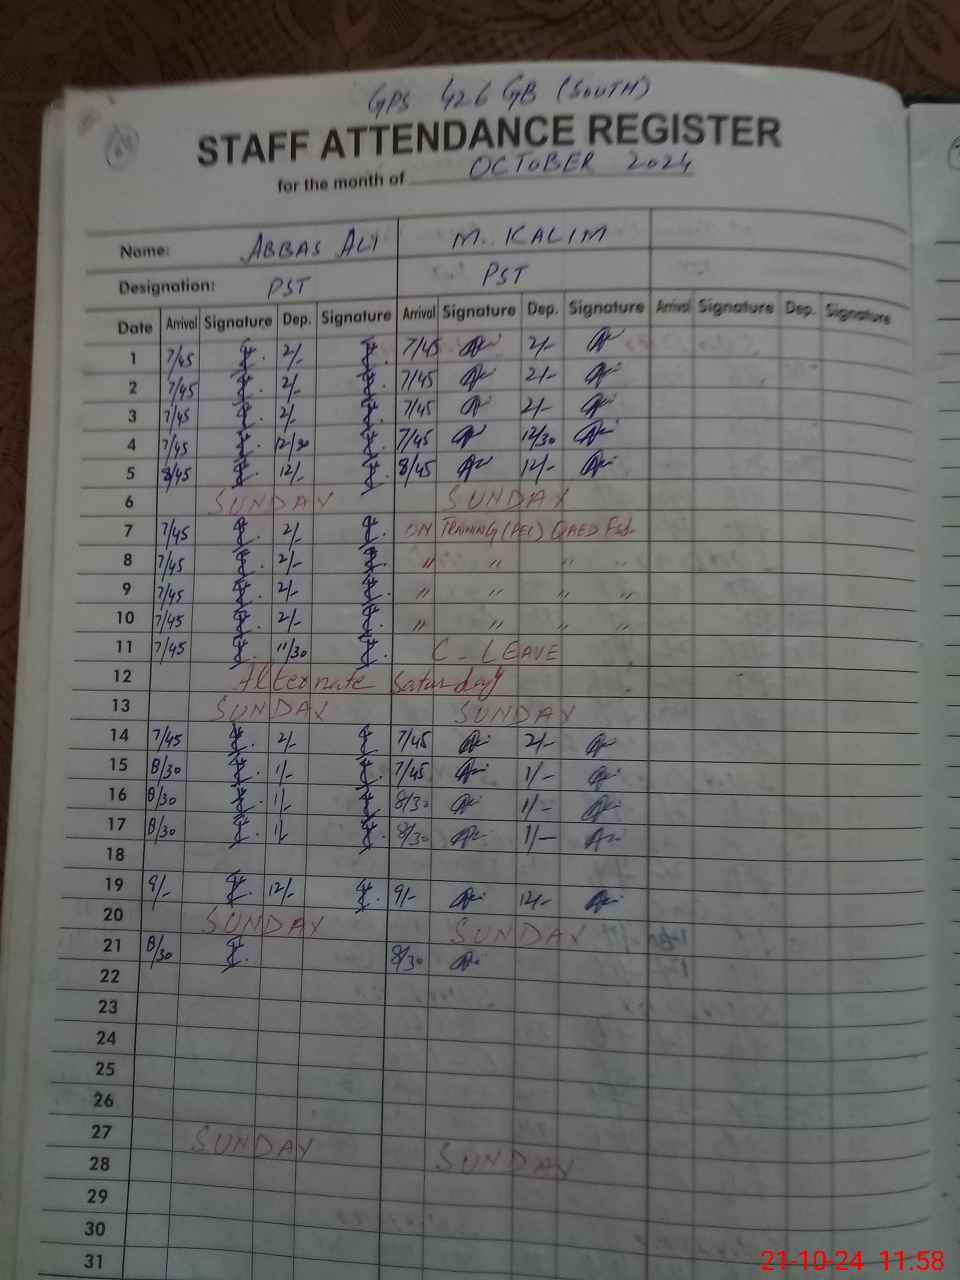 GPS 426 GB (SOUTH)
STAFF ATTENDANCE REGISTER
for the month of OCTOBER 2024
Name: ABBAS ALI M. KALIM
Designation: PST PST
Date Arrival Signature Dep. Signature Arrival Signature Dep. Signature Arrival Signature Dep. Signature
1 7/45 2/- 7/45 2/-
2 7/45 2/- 7/45 2/-
3 7/45 2/- 7/45 2/-
4 7/45 12/30 7/45 12/30
5 8/45 12/- 8/45 12/-
6 SUNDAY SUNDAY
7 7/45 2/- ON TRAINING QAED Fsd.
8 7/45 2/- " " " "
9 7/45 2/- " " " "
10 7/45 2/- " " " "
11 7/45 11/30 C - LEAVE
12 Alternate Saturday
13 SUNDAY SUNDAY
14 7/45 2/- 7/45 2/-
15 8/30 1/- 7/45 1/-
16 8/30 1/- 8/30 1/-
17 8/30 1/- 8/30 1/-
18
19 9/- 12/- 9/- 12/-
20 SUNDAY SUNDAY
21 8/30 8/30
22
23
24
25
26
27 SUNDAY SUNDAY
28
29
30
31
21-10-24 11.58